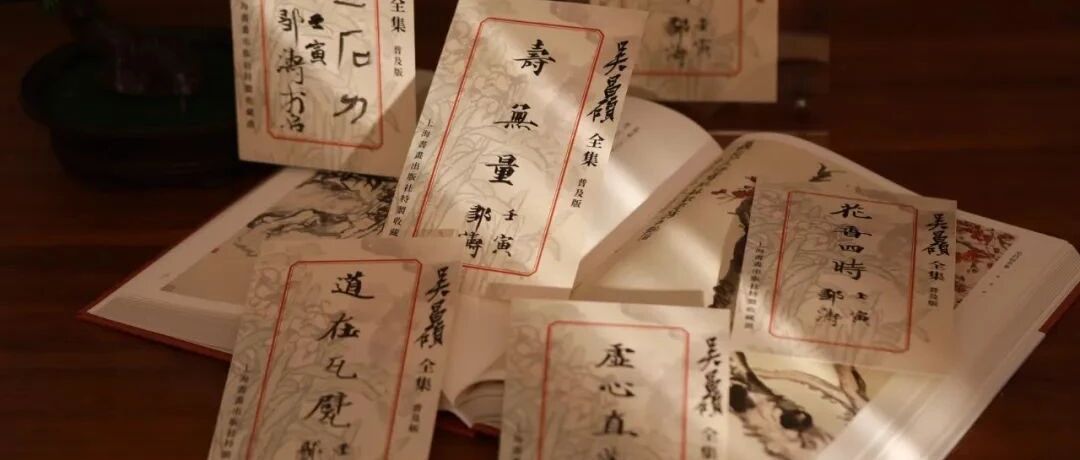 石力
壬寅
鄒濤
全集
普及版
上海書畫出版社特製收藏
吴昌碩
全集
普及版
壽無量
壬寅
鄒濤
上海書畫出版社特製收藏
壬寅
鄒濤
吴昌碩
全集
普及版
花香四時
壬寅
鄒濤
上海書畫出版社特製收藏
吴昌碩
全集
普及版
道在瓦甓
上海書畫出版社特製收藏
吴昌碩
全集
虛心直
上海書畫出版社特製